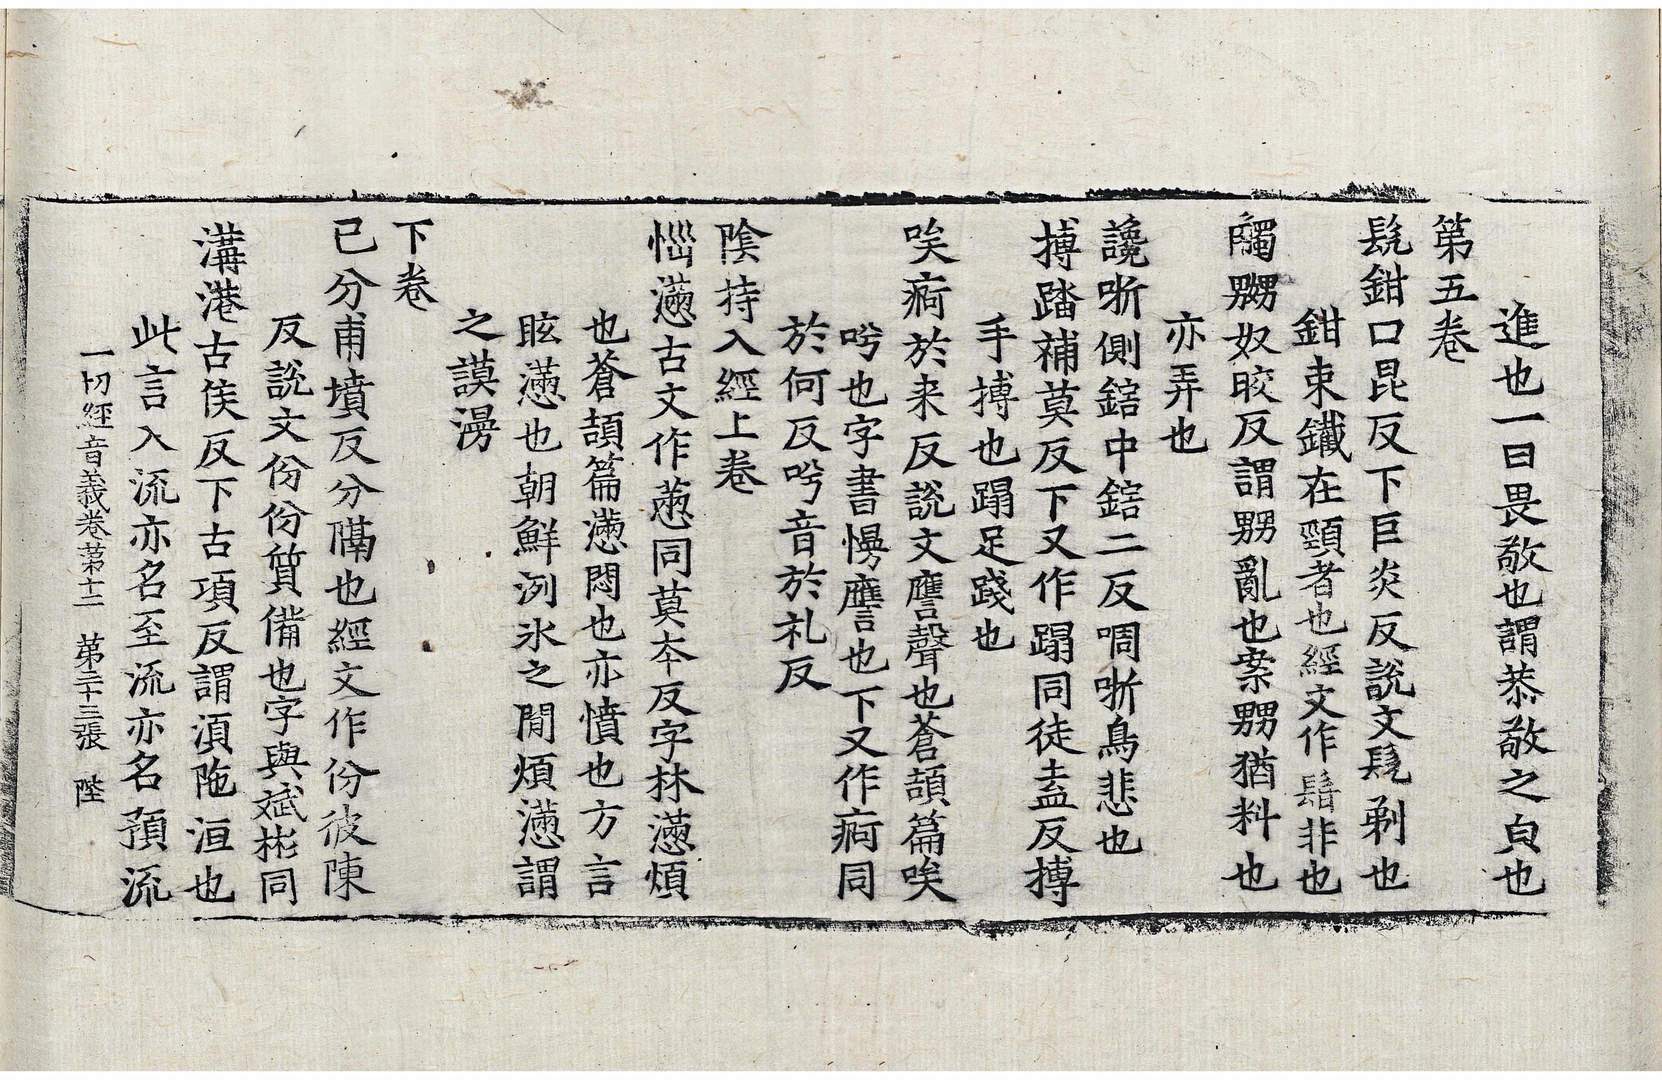 進也一曰畏敬也謂恭敬之皃也
第五卷
髡鉗口昆反下巨炎反說文髡剃也
鉗束鐵在頸者也經文作髻非也
嬲奴皎反謂嬲亂也案嬲猶料也
亦弄也
讒哳側鎋中鎋二反啁哳鳥悲也
搏蹋補莫反下又作蹋同徒盍反搏
手搏也蹋足踐也
唉痾於来反說文譍聲也蒼頡篇唉
吟也字書慢譍也下又作痾同
於何反吟音於礼反
陰持入經上卷
惱懣古文作懑同莫夲反字林懣煩
也蒼頡篇懣悶也亦憤也方言
眩懣也朝鮮洌水之閒煩懣謂
之謨漫
下卷
已分甫墳反分隔也經文作份彼陳
反說文份份質備也字與斌彬同
溝港古侯反下古項反謂湏陁洹也
此言入流亦名至流亦名預流
一切經音義卷第十二 第二十三張 陛